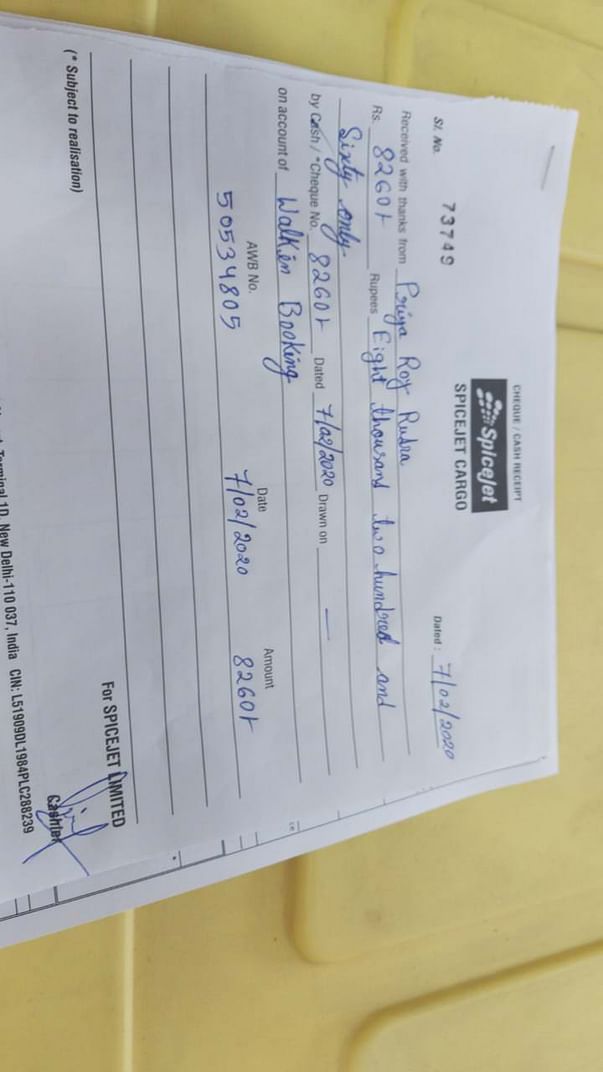 CHEQUE / CASH RECEIPT
SpiceJet
SPICEJET CARGO
Sl. No. 73749 Dated : 7/02/2020
Received with thanks from Priya Roy Rudra
Rs. 8260/- Rupees Eight thousand two hundred and
Sixty only
by Cash / *Cheque No. 8260/- Dated 7/02/2020 Drawn on —
on account of Walkin Booking
AWB No. Date Amount
50534805 7/02/2020 8260/-
For SPICEJET LIMITED
Cashier
(* Subject to realisation)
Terminal 1D, New Delhi-110 037, India CIN: L51909DL1984PLC288239